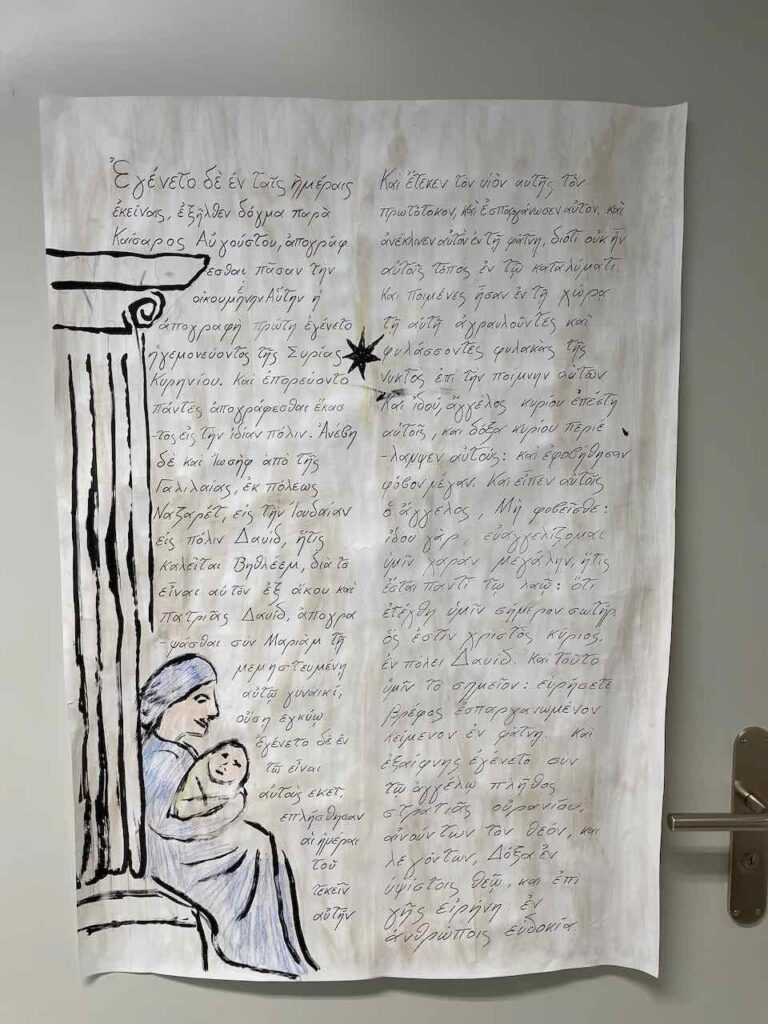 Ἐγένετο δὲ ἐν ταῖς ἡμέραις
ἐκείναις, ἐξῆλθεν δόγμα παρὰ
Καίσαρος Αὐγούστου, ἀπογράφ
εσθαι πᾶσαν την
οἰκουμήνην Αὕτην ἡ
ἀπογραφὴ πρώτη ἐγένετο
ἡγεμονεύοντος τῆς Συρίας
Κυρηνίου. Και ἐπορεύοντο
πάντες ἀπογράφεσθαι ἕκασ
-τος εἰς τὴν ἰδίαν πόλιν. Ἀνέβη
δὲ καὶ Ἰωσὴφ ἀπὸ τῆς
Γαλιλαίας, ἐκ πόλεως
Ναζαρέτ, εἰς τὴν Ἰουδαίαν
εἰς πόλιν Δαυίδ, ἥτις
καλεῖται Βηθλέεμ, διὰ το
εἶναι αὐτὸν ἐξ ἄκου καὶ
πατριᾶς Δαυίδ, ἀπογρα
-ψάσθαι σὺν Μαριὰμ τῇ
μεμηστευμένη
αὐτῷ γυναικί,
οὔσῃ εγκύω
Ἐγένετο δὲ ἐν
τῶ εἶναι
αὐτοὺς εκετ.
επλήσθησαν
αἱ ἡμέραι
τοῦ
τεκεῖν
αὐτήν
Και ἔτεκεν τον υἱὸν αὐτῆς τὸν
πρωτότοκον, και ἐσπαργάνωσεν αὐτον. και
ἀνέκλινεν αὐτὸν ἐν τῇ φάτνη, διότι οὐκ ἦν
αὐτοῖς τόπος ἐν τῷ καταλύματι
Και ποιμένες ἦσαν ἐν τῇ χώρα
τῇ αὐτῇ ἀγραυλοῦντες καὶ
φυλάσσοντες φυλακας τῆς
νυκτὸς ἐπι τὴν ποίμνην αὐτῶν
Καὶ ἰδού, ἄγγελος κυρίου ἐπέστη
αὐτοῖς, και δόξα κυρίου περιε
-λαμψεν αὐτούς: και ἐφοβήθησαν
φόβον μέγαν. Και εἶπεν αὐτοῖς
ὁ ἄγγελος, Μὴ φοβεῖσθε:
ἰδου γὰρ, εὐαγγελίζομαι
ὑμῖν χαραν μεγάλην, ἥτις
ἔσται παντι τω λαῷ: ὅτι
ἐτέχθη ὑμῖν σήμερον σωτήρ,
ὅς ἐστιν χριστὸς κύριος,
ἐν πόλει Δαυίδ. Και τοῦτο
ὑμῖν το σημεῖον: εὑρήσετε
βρέφος ἐσπαργανωμένον
κείμενον ἐν φάτνῃ. Και
ἐξαίφνης ἐγένετο συν
τω ἀγγέλω πλῆθος
στρατιᾶς οὐρανίου,
αἰνούντων τον θεόν, και
λεγόντων, Δόξα ἐν
ὑψίστοις θεῷ, και ἐπι
γῆς εἰρήνη ἐν
ἀνθρώποις εὐδοκία